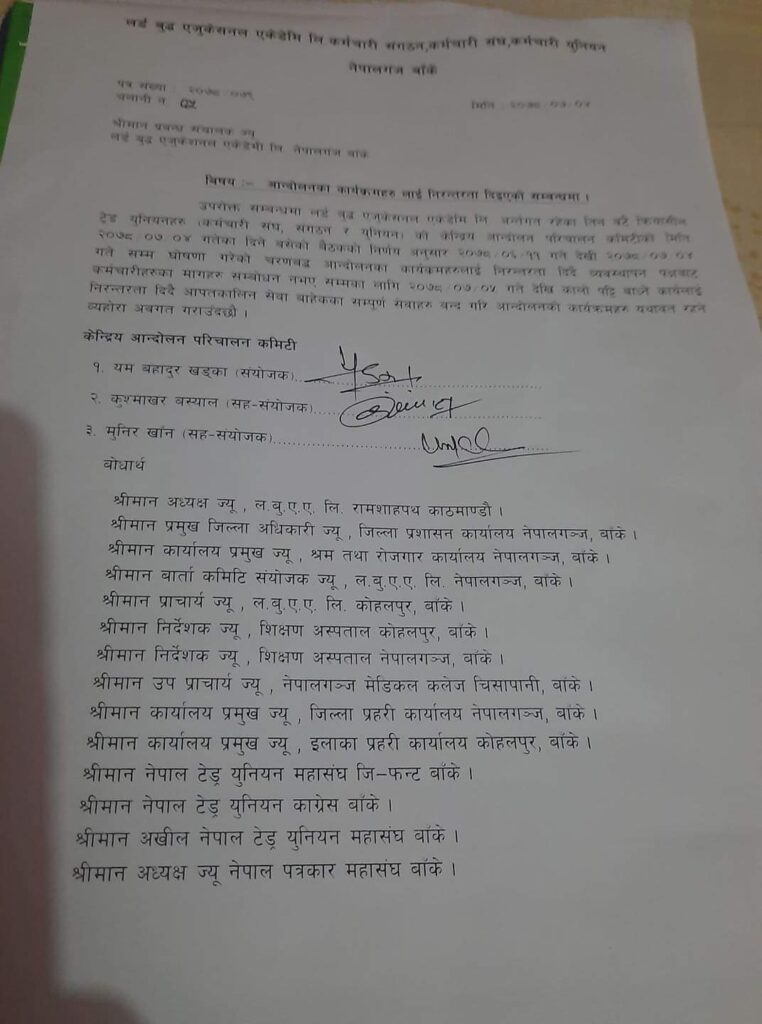 लर्ड बुद्ध एजुकेसनल एकेडेमि लि कर्मचारी संगठन,कर्मचारी संघ,कर्मचारी युनियन
नेपालगंज बाँके
पत्र संख्या : २०७८/०७९
चलानी नं. ०५
मिति : २०७८/०७/०४
श्रीमान प्रबन्ध संचालक ज्यू
लर्ड बुद्ध एजुकेसनल एकेडेमी लि. नेपालगंज बाँके
विषय :- आन्दोलनका कार्यक्रमहरु लाई निरन्तरता दिइएको सम्बन्धमा ।
उपरोक्त सम्बन्धमा लर्ड बुद्ध एजुकेसनल एकेडेमि लि. अर्न्तगत रहेका तिन वटै क्रियासील
ट्रेड युनियनहरु (कर्मचारी संघ, संगठन र युनियन) को केन्द्रिय आन्दोलन परिचालन कमिटीको मिति
२०७८/०७/०४ गतेका दिन बसेको बैठकको निर्णय अनुसार २०७८/०६/११ गते देखी २०७८/०७/०४
गते सम्म घोषणा गरेको चरणबद्ध आन्दोलनका कार्यक्रमहरुलाई निरन्तरता दिदै व्यवस्थापन पक्षबाट
कर्मचारीहरुका मागहरु सम्बोधन नभए सम्मका लागि २०७८/०७/०५ गते देखि कालो पट्टि बाध्ने कार्यलाई
निरन्तरता दिदै आपतकालिन सेवा बाहेकका सम्पूर्ण सेवाहरु बन्द गरि आन्दोलनको कार्यक्रमहरु यथावत रहने
व्यहोरा अवगत गराउंदछौ ।
केन्द्रिय आन्दोलन परिचालन कमिटि
१. यम बहादुर खड्का (संयोजक)
२. कुश्माखर बस्याल (सह-संयोजक)
३. मुनिर खाँन (सह-संयोजक)
बोधार्थ
श्रीमान अध्यक्ष ज्यू , ल.बु.ए.ए. लि. रामशाहपथ काठमाण्डौ ।
श्रीमान प्रमुख जिल्ला अधिकारी ज्यू , जिल्ला प्रशासन कार्यालय नेपालगञ्ज, बाँके ।
श्रीमान कार्यालय प्रमुख ज्यू , श्रम तथा रोजगार कार्यालय नेपालगञ्ज, बाँके ।
श्रीमान बार्ता कमिटि संयोजक ज्यू , ल.बु.ए.ए. लि. नेपालगञ्ज, बाँके ।
श्रीमान प्राचार्य ज्यू , ल.बु.ए.ए. लि. कोहलपुर, बाँके ।
श्रीमान निर्देशक ज्यू , शिक्षण अस्पताल कोहलपुर, बाँके ।
श्रीमान निर्देशक ज्यू , शिक्षण अस्पताल नेपालगञ्ज, बाँके ।
श्रीमान उप प्राचार्य ज्यू , नेपालगञ्ज मेडिकल कलेज चिसापानी, बाँके ।
श्रीमान कार्यालय प्रमुख ज्यू , जिल्ला प्रहरी कार्यालय नेपालगञ्ज, बाँके ।
श्रीमान कार्यालय प्रमुख ज्यू , इलाका प्रहरी कार्यालय कोहलपुर, बाँके ।
श्रीमान नेपाल टेड्र युनियन महासंघ जि-फन्ट बाँके ।
श्रीमान नेपाल टेड्र युनियन काग्रेस बाँके ।
श्रीमान अखील नेपाल टेड्र युनियन महासंघ बाँके ।
श्रीमान अध्यक्ष ज्यू नेपाल पत्रकार महासंघ बाँके ।